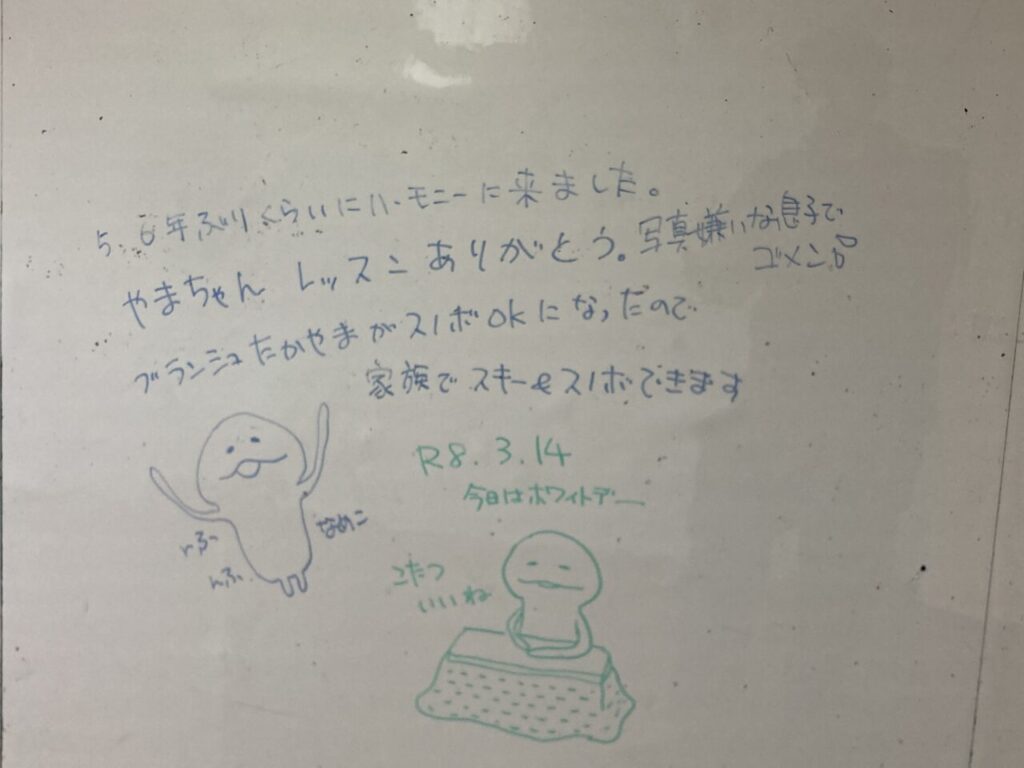 5、6年ぶりくらいにハーモニーに来ました。
やまちゃん レッスン ありがとう。写真嫌いな息子で
ゴメン
ブランシュたかやまがスノボOKになったので
家族でスキー&スノボできます
R8.3.14
今日はホワイトデー
なめこ
んふー
んふ
こたつ
いいね